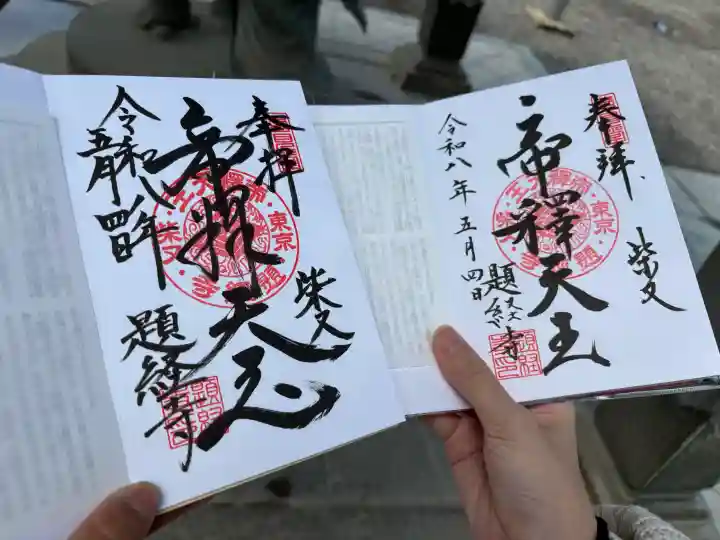 奉拝
柴又
帝釋天王
令和八年
五月四日
題経寺
奉拝
柴又
帝釋天王
令和八年五月四日
題経寺
東京
柴又
東京